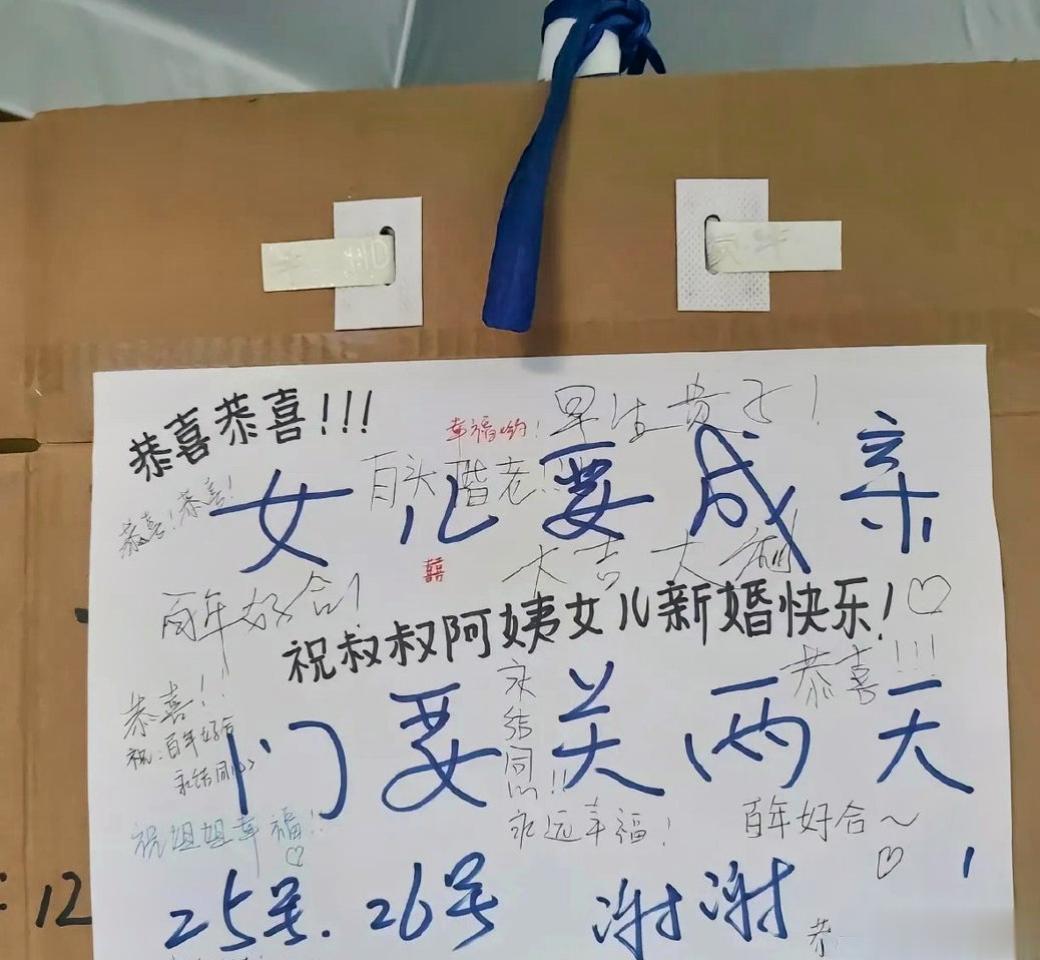 恭喜恭喜!!!
早生贵子!
幸福哟!
百头偕老!
恭喜!恭喜!
女儿要成亲
囍
大吉大利
百年好合!
祝叔叔阿姨女儿新婚快乐!
恭喜!!!
恭喜!
祝:百年好合
永结同心
永结同心!!
门要关两天
祝姐姐幸福!
永远幸福!
百年好合~
:12
25号.26号 谢谢!
恭